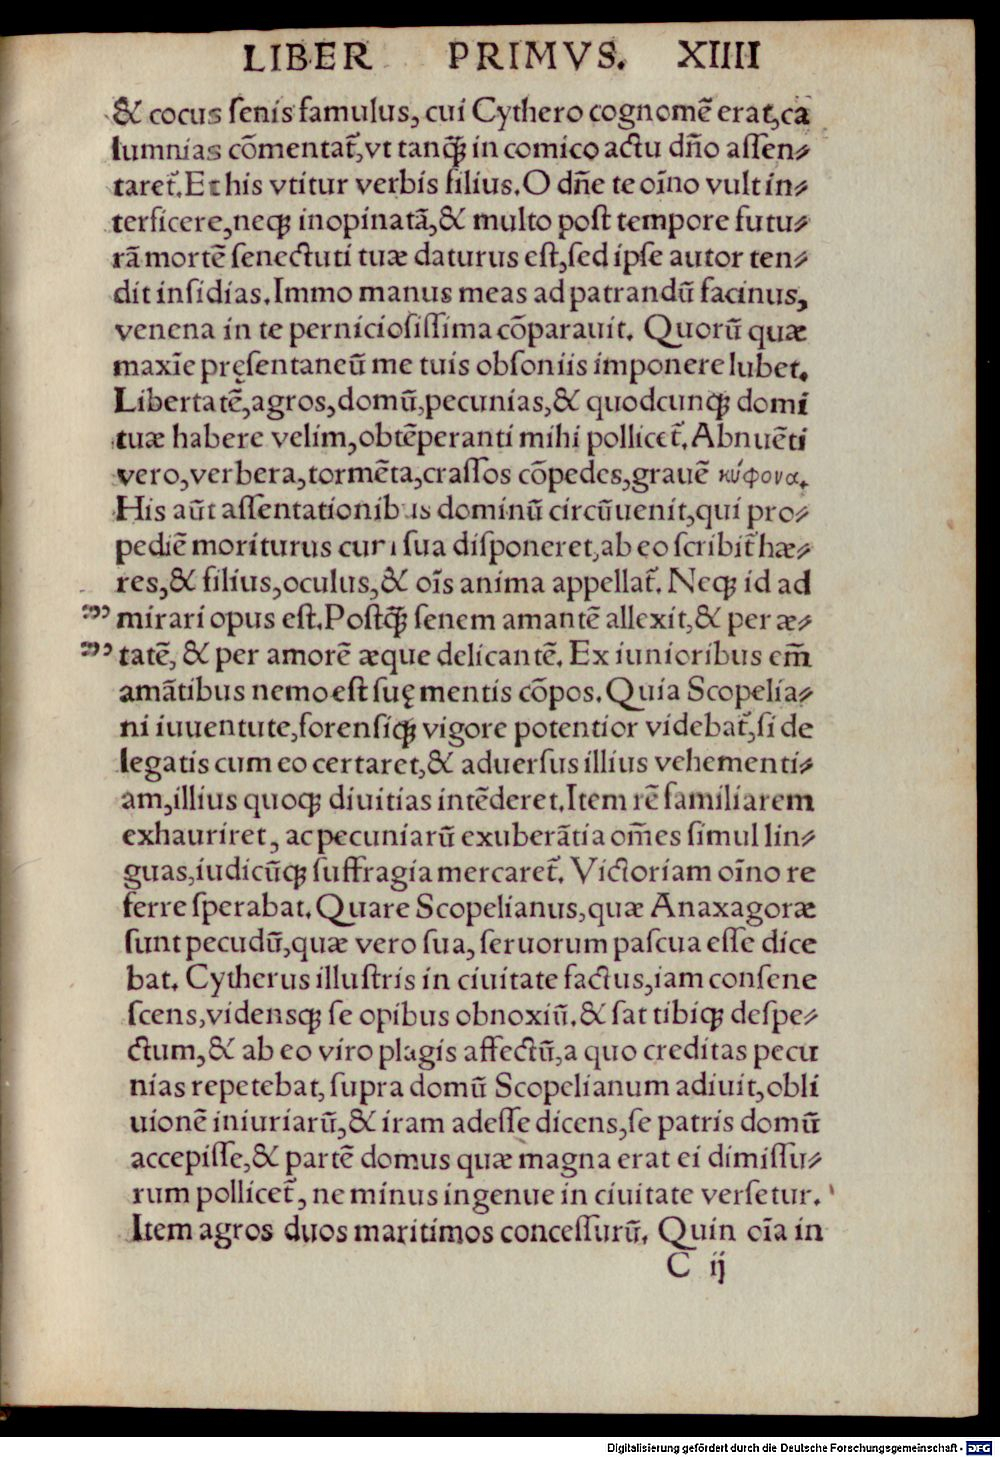 LIBER PRIMVS. XIIII
& cocus ſenis famulus, cui Cythero cognomē erat, ca
lumnias cōmentat᷑, vt tanꝗ̄ in comico actu dn̄o aſſen⸗
taret᷑. Et his vtitur verbis filius. O dn̄e te oīno vult in⸗
terficere, neqꝫ inopinatā, & multo poſt tempore futu⸗
rā mortē ſenectuti tuæ daturus eſt, ſed ipſe autor ten⸗
dit inſidias. Immo manus meas ad patrandū facinus,
venena in te pernicioſiſſima cōparauit. Quorū quæ
maxīe pręſentaneū me tuis obſoniis imponere lubet.
Libertatē, agros, domū, pecunias, & quodcunqꝫ domi
tuæ habere velim, obtēperanti mihi pollicet᷑. Abnuēti
vero, verbera, tormēta, craſſos cōpedes, grauē κύφονα.
His aūt aſſentationibus dominū circūuenit, qui pro⸗
pediē moriturus cum ſua diſponeret, ab eo ſcribit᷑ hæ⸗
res, & filius, oculus, & oīs anima appellat᷑. Neqꝫ id ad
mirari opus eſt. Poſtꝗ̄ ſenem amantē allexit, & per æ⸗
tatē, & per amorē æque delicantē. Ex iunioribus em̄
amātibus nemo eſt ſuę mentis cōpos. Quia Scopelia⸗
ni iuuentute, forenſiqꝫ vigore potentior videbat᷑, ſi de
legatis cum eo certaret, & aduerſus illius vehementi⸗
am, illius quoqꝫ diuitias intēderet. Item rē familiarem
exhauriret, ac pecuniarū exuberātia om̄es ſimul lin⸗
guas, iudicūqꝫ ſuffragia mercaret᷑. Victoriam oīno re
ferre ſperabat. Quare Scopelianus, quæ Anaxagoræ
ſunt pecudū, quæ vero ſua, ſeruorum paſcua eſſe dice
bat. Cytherus illuſtris in ciuitate factus, iam conſene
ſcens, vidensqꝫ ſe opibus obnoxiū. & ſat tibiqꝫ deſpe⸗
ctum, & ab eo viro plagis affectū, a quo creditas pecu
nias repetebat, ſupra domū Scopelianum adiuit, obli
uionē iniuriarū, & iram adeſſe dicens, ſe patris domū
accepiſſe, & partē domus quæ magna erat ei dimiſſu⸗
rum pollicet᷑, ne minus ingenue in ciuitate verſetur.
Item agros duos maritimos conceſſurū. Quin oīa in
C ij
Digitalisierung gefördert durch die Deutsche Forschungsgemeinschaft - DFG